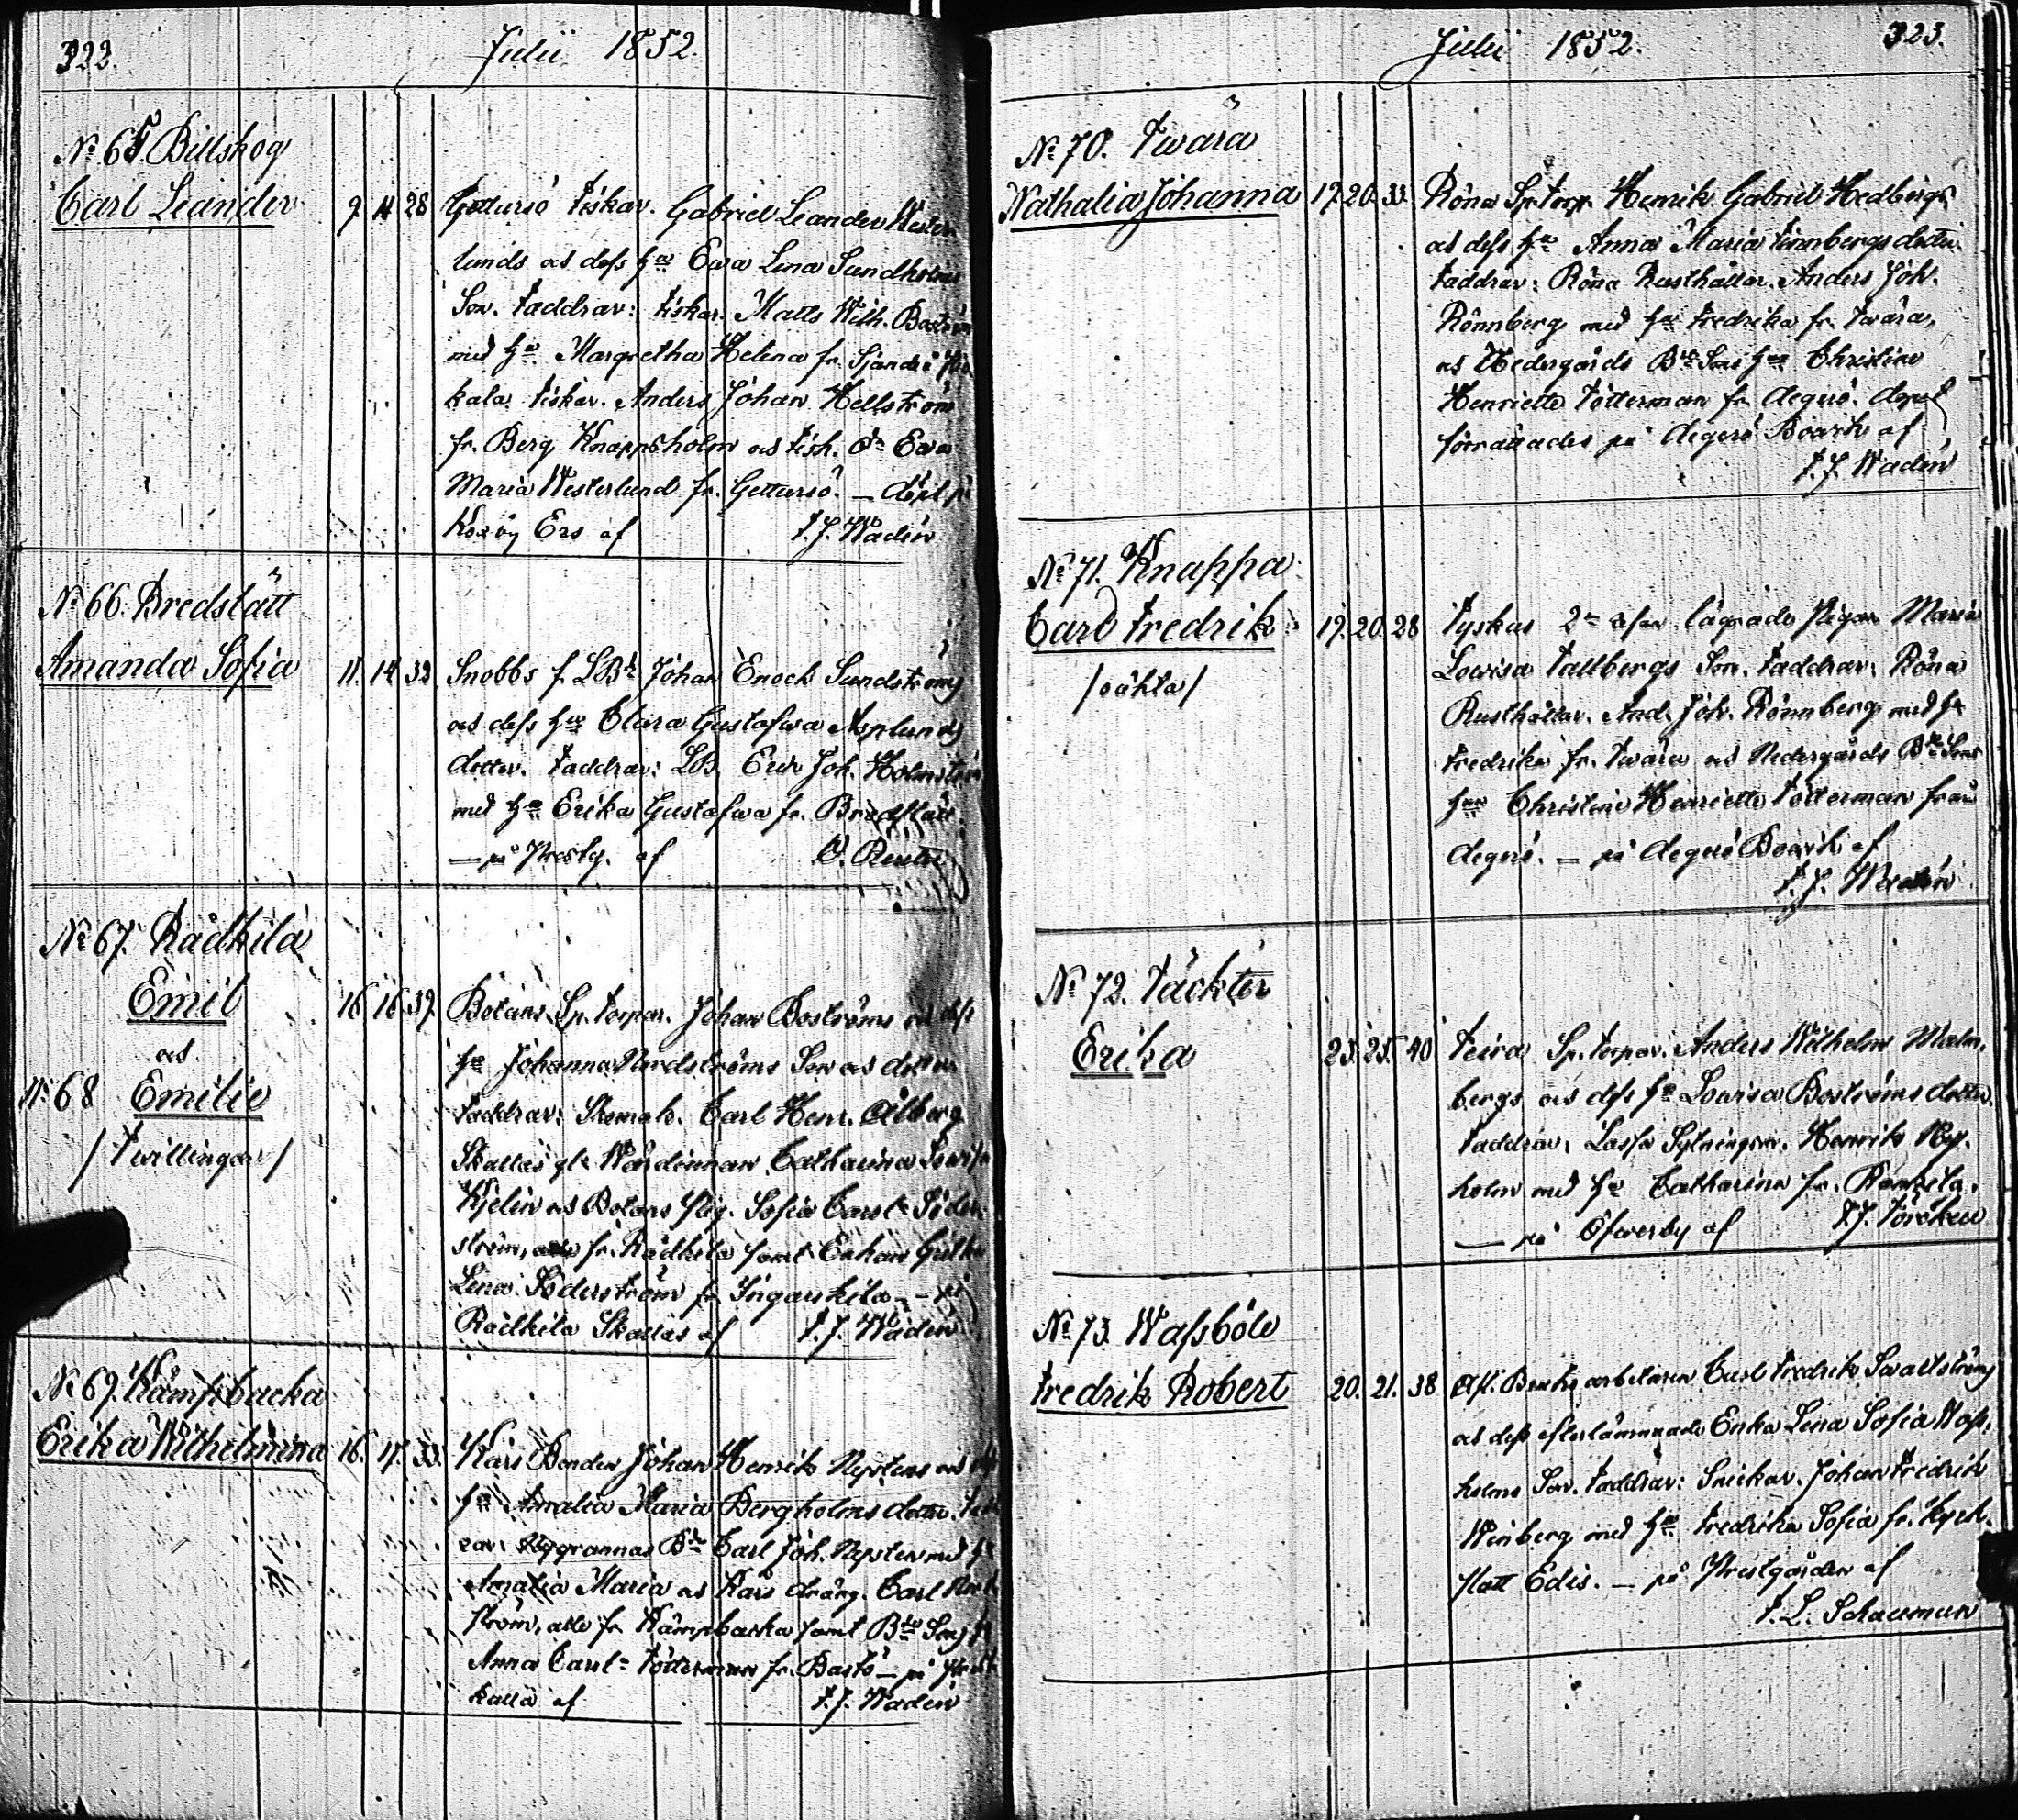 322. Julii 1852.
No 65. Billskog
Carl Leander 9. 11 28 Gettursö Fiskar. Gabriel Leander Wester-
lunds och dess hu Ewa Lena Sundholms
Son. Faddrar: Fiskar. Matts Wilh. Boström
med hu Margretha Helena fr. Sjundeå
kala Fiskar. Anders Johan Hellström
fr. Berg Knappsholm och Fisk. Ewa
Maria Westerlund fr. Gettursö. — döpt på
Koxby Ers af F. J. Wadén
No 66. Bredslätt
Amanda Sofia 11. 14. 32 Snobbs f. LBd Johan Enoch Sundströms
och dess hu Clara Gustafwa Asplunds
dotter. Faddrar: LB. Eric Joh. Holmström
med hu Erika Gustafwa fr. Bredslätt
— på Prestg. af O. Reuter
No 67. Rådkila
Emil 16. 16. 39. Botans Sp. torpar. Johan Boströms och dess
och hu Johanna Nordströms Son och dotter
No 68 Emilie Faddrar: Skomak. Carl Henr. Ålberg
/Twillingar/ Skallas gl. Wärdinnan Catharina Lowisa
Kjelin och Botans Pig. Sofia Carol. Söder-
ström, alla fr. Rådkila samt Enkan Gustva
Lena Söderström fr. Ingarskila — på
Rådkila Skallas af F. J. Wadén
No 69. Kämpbacka
Erika Wilhelmina 16. 17. 33. Kårs Bonden Johan Henrik Nystens och
hu Amalia Maria Bergholms dotter. Fadd
rar: Nygrannas Bde Carl Joh. Nysten med hu
Amalia Maria och Kårs dräng. Carl
ström, alla fr Kämpbacka samt Bde Sons hu
Anna Carol. Tötterman fr. Bastö — på
kulla af F. J. Wadén
Julii 1852. 323.
No 70. Twära
Nathalia Johanna 17. 20. 33. Röna Sp. torp. Henrik Gabriel Hedbergs
och dess hu Anna Maria Finnbergs dotter.
Faddrar: Röna Rusthållar. Anders Joh.
Rönnberg med hu Fredrika fr. Twära,
och Nedergårds Bde Sons hu Christine
Henriette Tötterman fr. Degerö. döpel
förrättades på Degerö Boark af
F. J. Wadén
No 71. Knappa
Carl Fredrik 19. 20. 28 Tyskas 2ne lägrade Pigan Maria
/oäkta/ Lowisa Tallbergs Son. Faddrar: Röna
Rusthållar. And. Joh. Rönnberg med hu
Fredrika fr. Twära och Nedergårds Bde Sons
hu Christine Henriette Tötterman från
Degerö. — på Degerö Boark af
F. J. Wadén
No 72. Täckter
Erika 23. 25. 40 Feira Sp. torpar. Anders Wilhelm Malm-
bergs och dess hu Lowisa Boströms dotter.
Faddrar: Lassas Sytningsm. Henrik Ny-
holm med hu Catharina fr. Rankila.
— på Öfwerby af F. J. Törnken
No 73. Wassböle
Fredrik Robert 20. 21. 38 Afl. Bruks arbetaren Carl Fredrik Swartströms
och dess efterlämnade Enka Lena Sofia Wass-
holms Son. Faddrar: Snickar. Johan Fredrik
Winberg med hu Fredrika Sofia fr. Kyrk-
slätt Edis. — på Prestgården af
F. L. Schauman